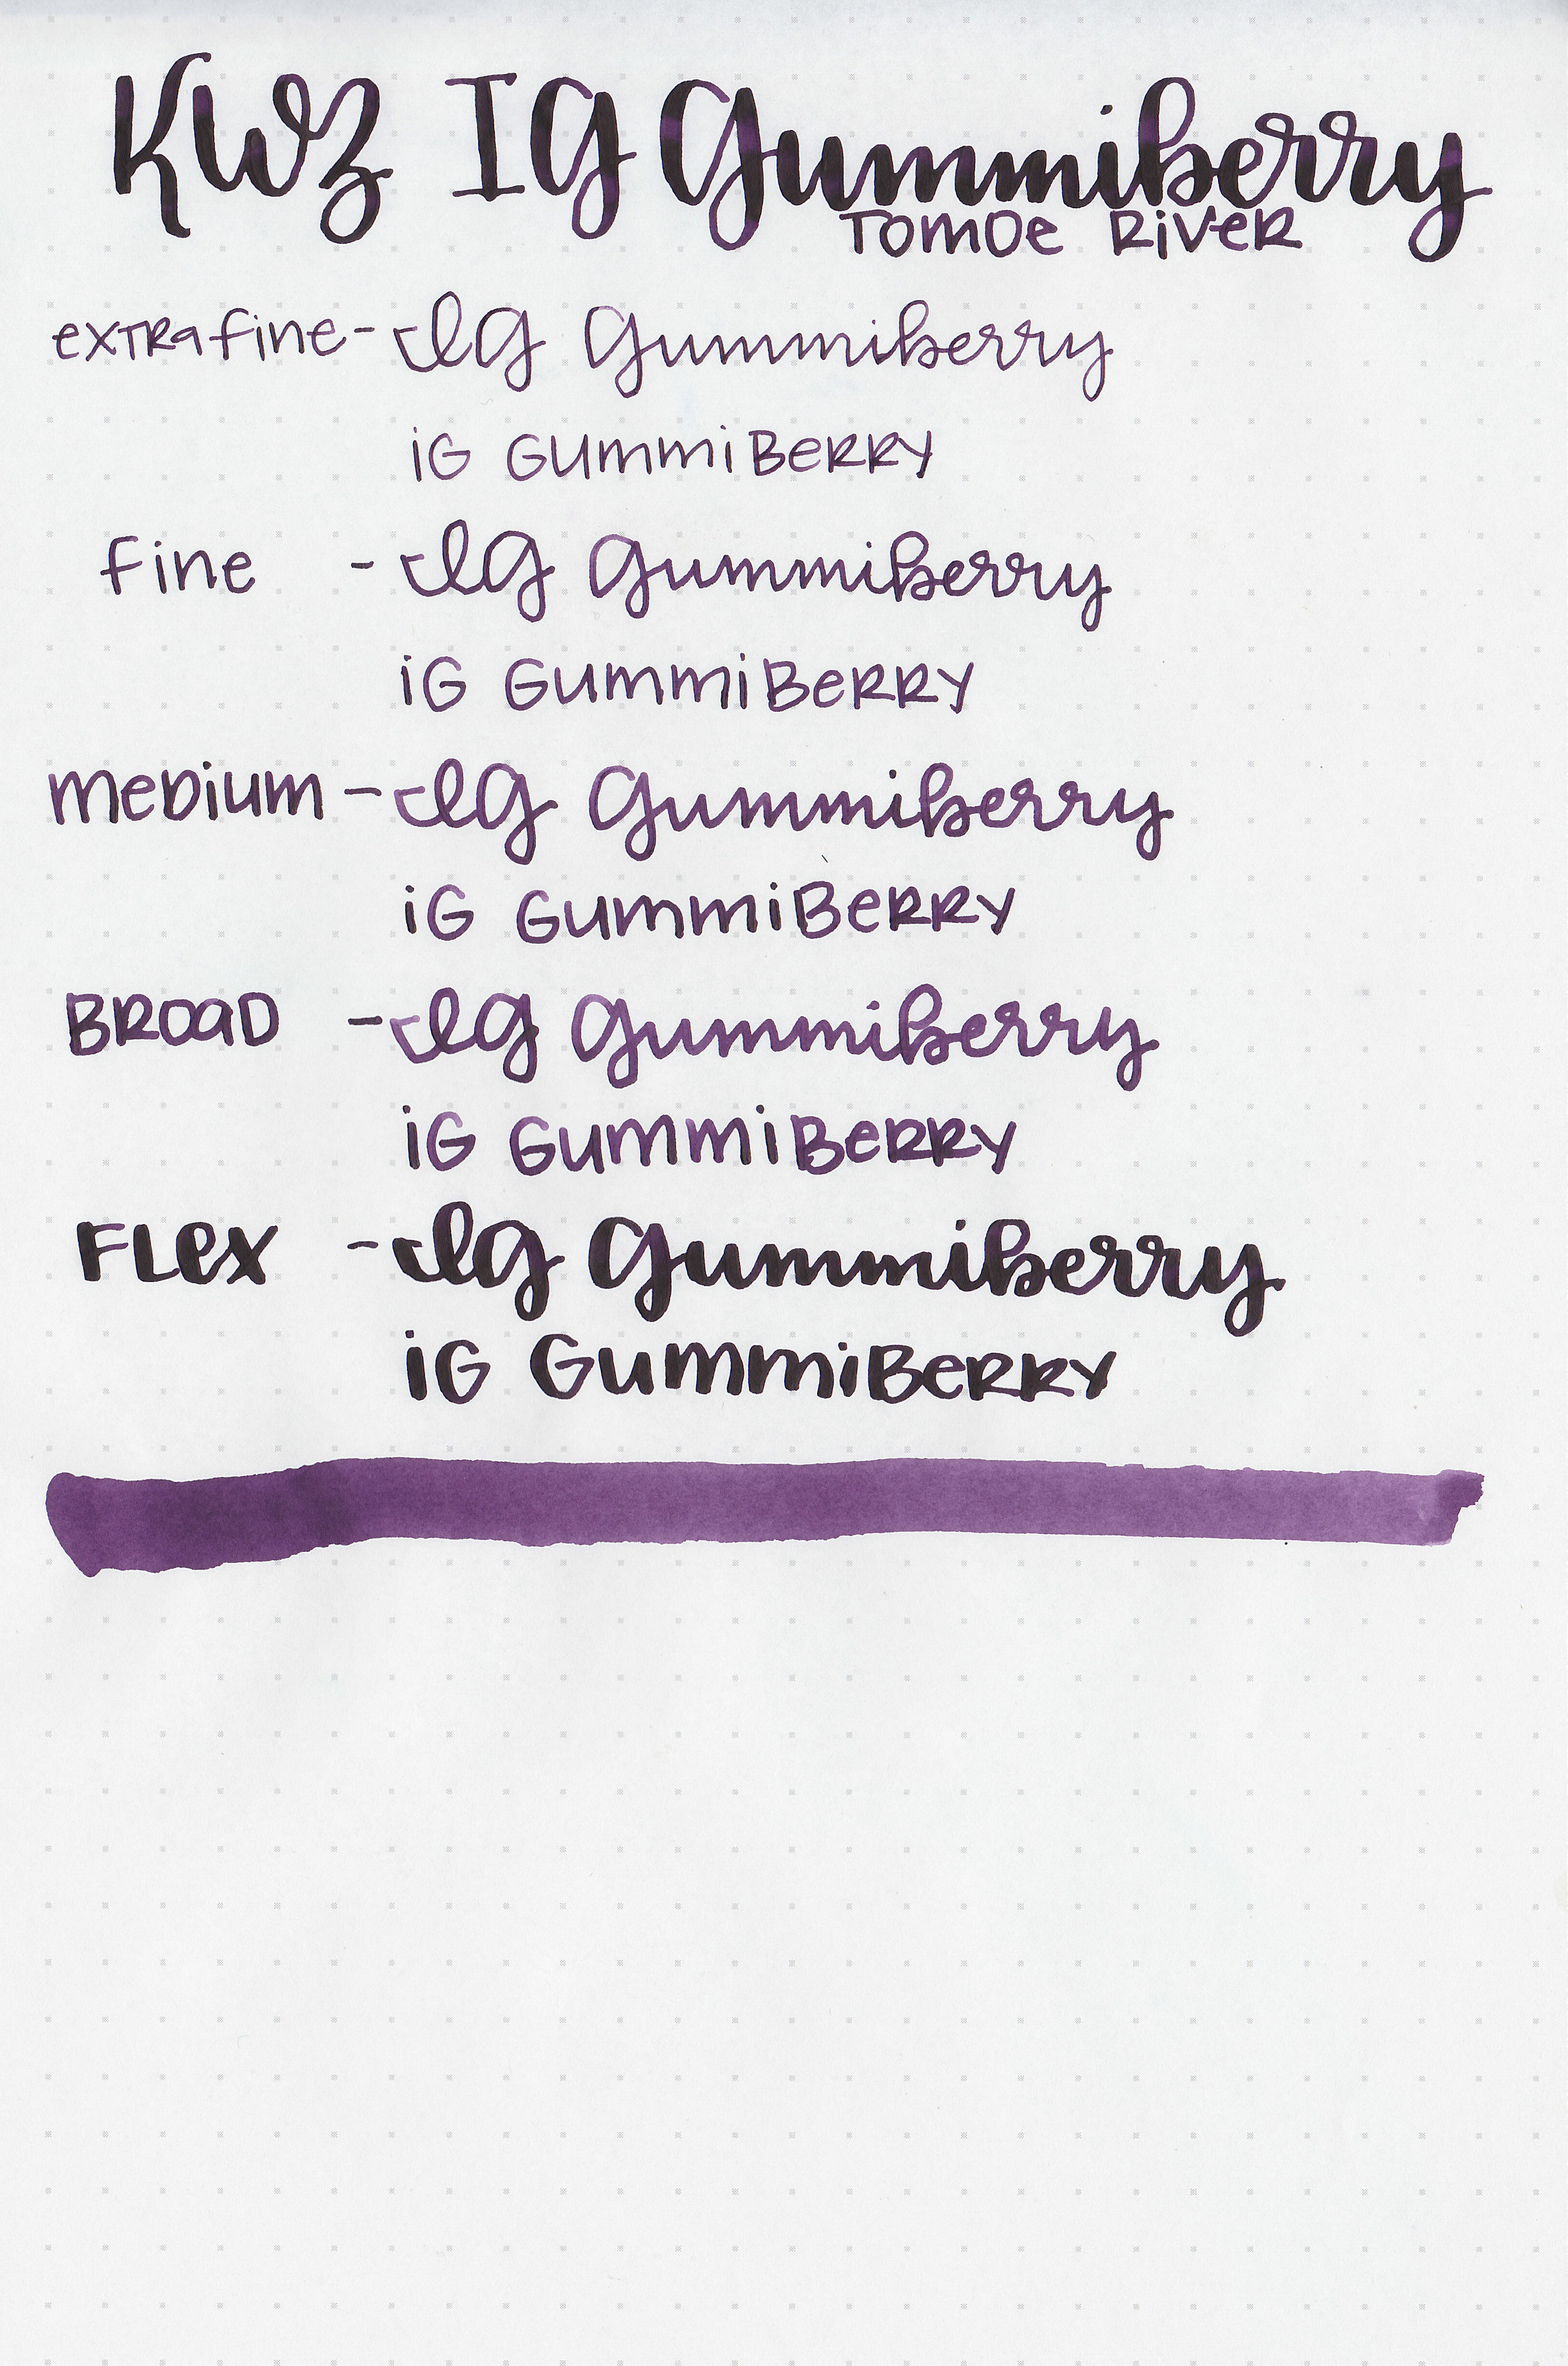 KWZ IG Gummiberry
Tomoe River
extra fine - IG Gummiberry
iG GummiBeRRY
fine - IG Gummiberry
iG GummiBeRRY
meDium - IG Gummiberry
iG GummiBeRRY
BROaD - IG Gummiberry
iG GummiBeRRY
FLex - IG Gummiberry
iG GummiBeRRY